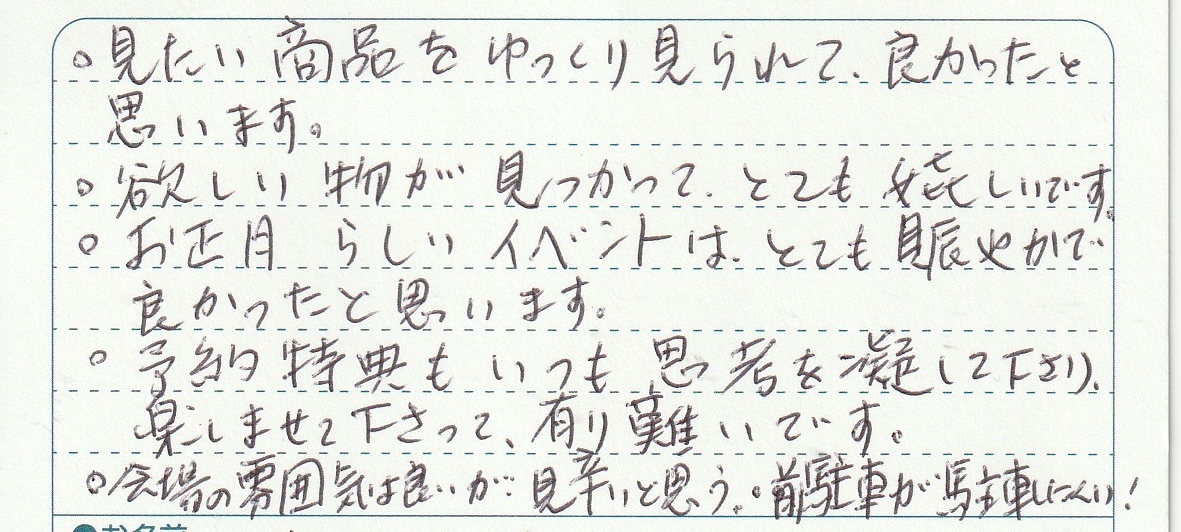 ○見たい商品をゆっくり見られて、良かったと
思います。
○欲しい物が見つかって、とても嬉しいです。
○お正月らしいイベントは、とても賑やかで
良かったと思います。
○予約特典もいつも思考を凝して下さり、
楽しませて下さって、有り難いです。
○会場の雰囲気は良いが、見辛いと思う。○前駐車が駐車しにくい!
●お名前